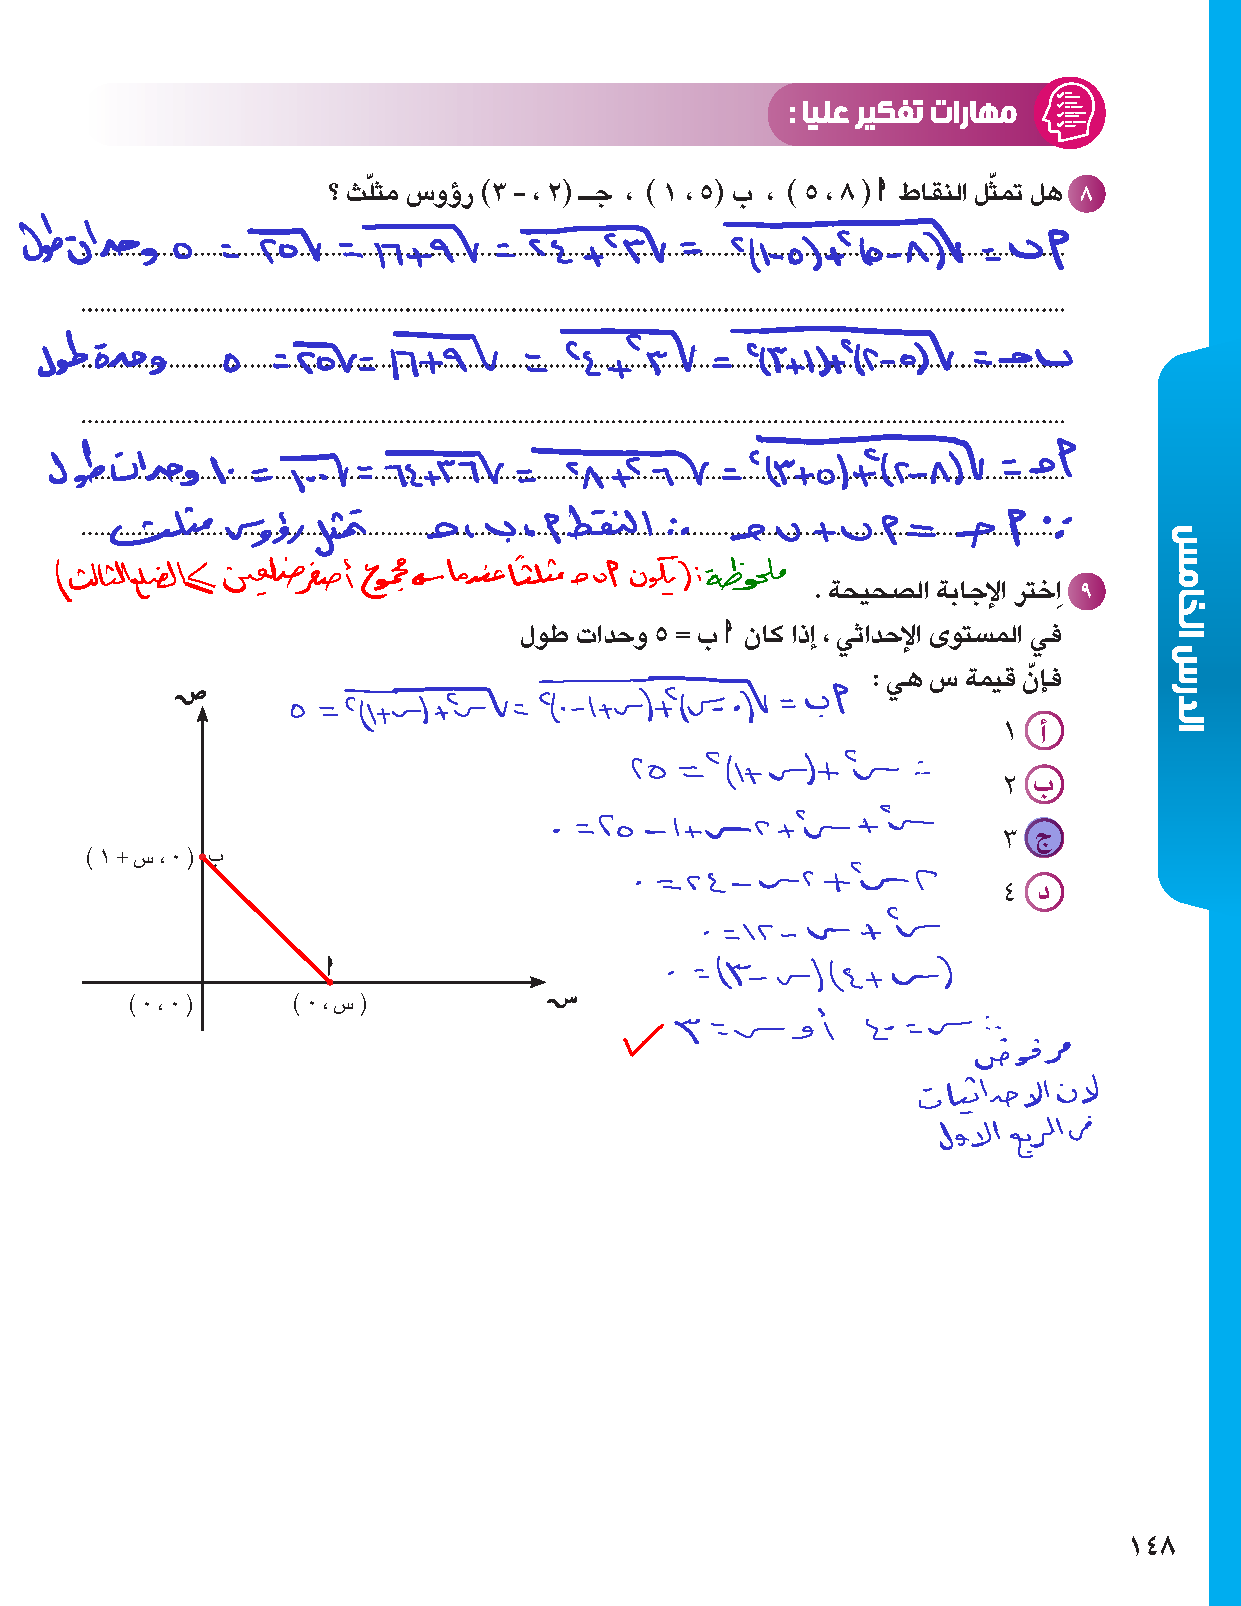 مهارات تفكير عليا :
٨ هل تمثّل النقاط أ ( ٨ ، ٥ ) ، ب ( ٥ ، ١ ) ، جـ ( ٢ ، - ٣ ) رؤوس مثلّث ؟
أ ب = √(٨-٥)²+(٥-١)² = √٣²+٤² = √٩+١٦ = √٢٥ = ٥ وحدات طول
ب حـ = √(٥-٢)²+(١+٣)² = √٣²+٤² = √٩+١٦ = √٢٥ = ٥ وحدة طول
أ حـ = √(٨-٢)²+(٥+٣)² = √٦²+٨² = √٣٦+٦٤ = √١٠٠ = ١٠ وحدات طول
∵ أ حـ = أ ب + ب حـ ∴ النقط أ ، ب ، حـ تمثل رؤوس مثلث
ملحوظة : (يكون أ ب حـ مثلثاً عندما مجموع أصغر ضلعين > الضلع الثالث)
٩ اِختر الإجابة الصحيحة .
في المستوى الإحداثي ، إذا كان أ ب = ٥ وحدات طول
فإنّ قيمة س هي :
أ ١
ب ٢
ج ٣
د ٤
أ ب = √(٠-س)²+(س+١-٠)² = √س²+(س+١)² = ٥
∴ س²+(س+١)² = ٢٥
س²+س²+٢س+١-٢٥=٠
٢س²+٢س-٢٤=٠
س²+س-١٢=٠
(س+٤)(س-٣)=٠
∴ س=-٤ أو س=٣ ✓
مرفوض
لان الاحداثيات
في الربع الاول
ص
ب ( ٠ ، س + ١ )
أ
( ٠ ، ٠ )
( س ، ٠ )
س
الدرس الخامس
١٤٨